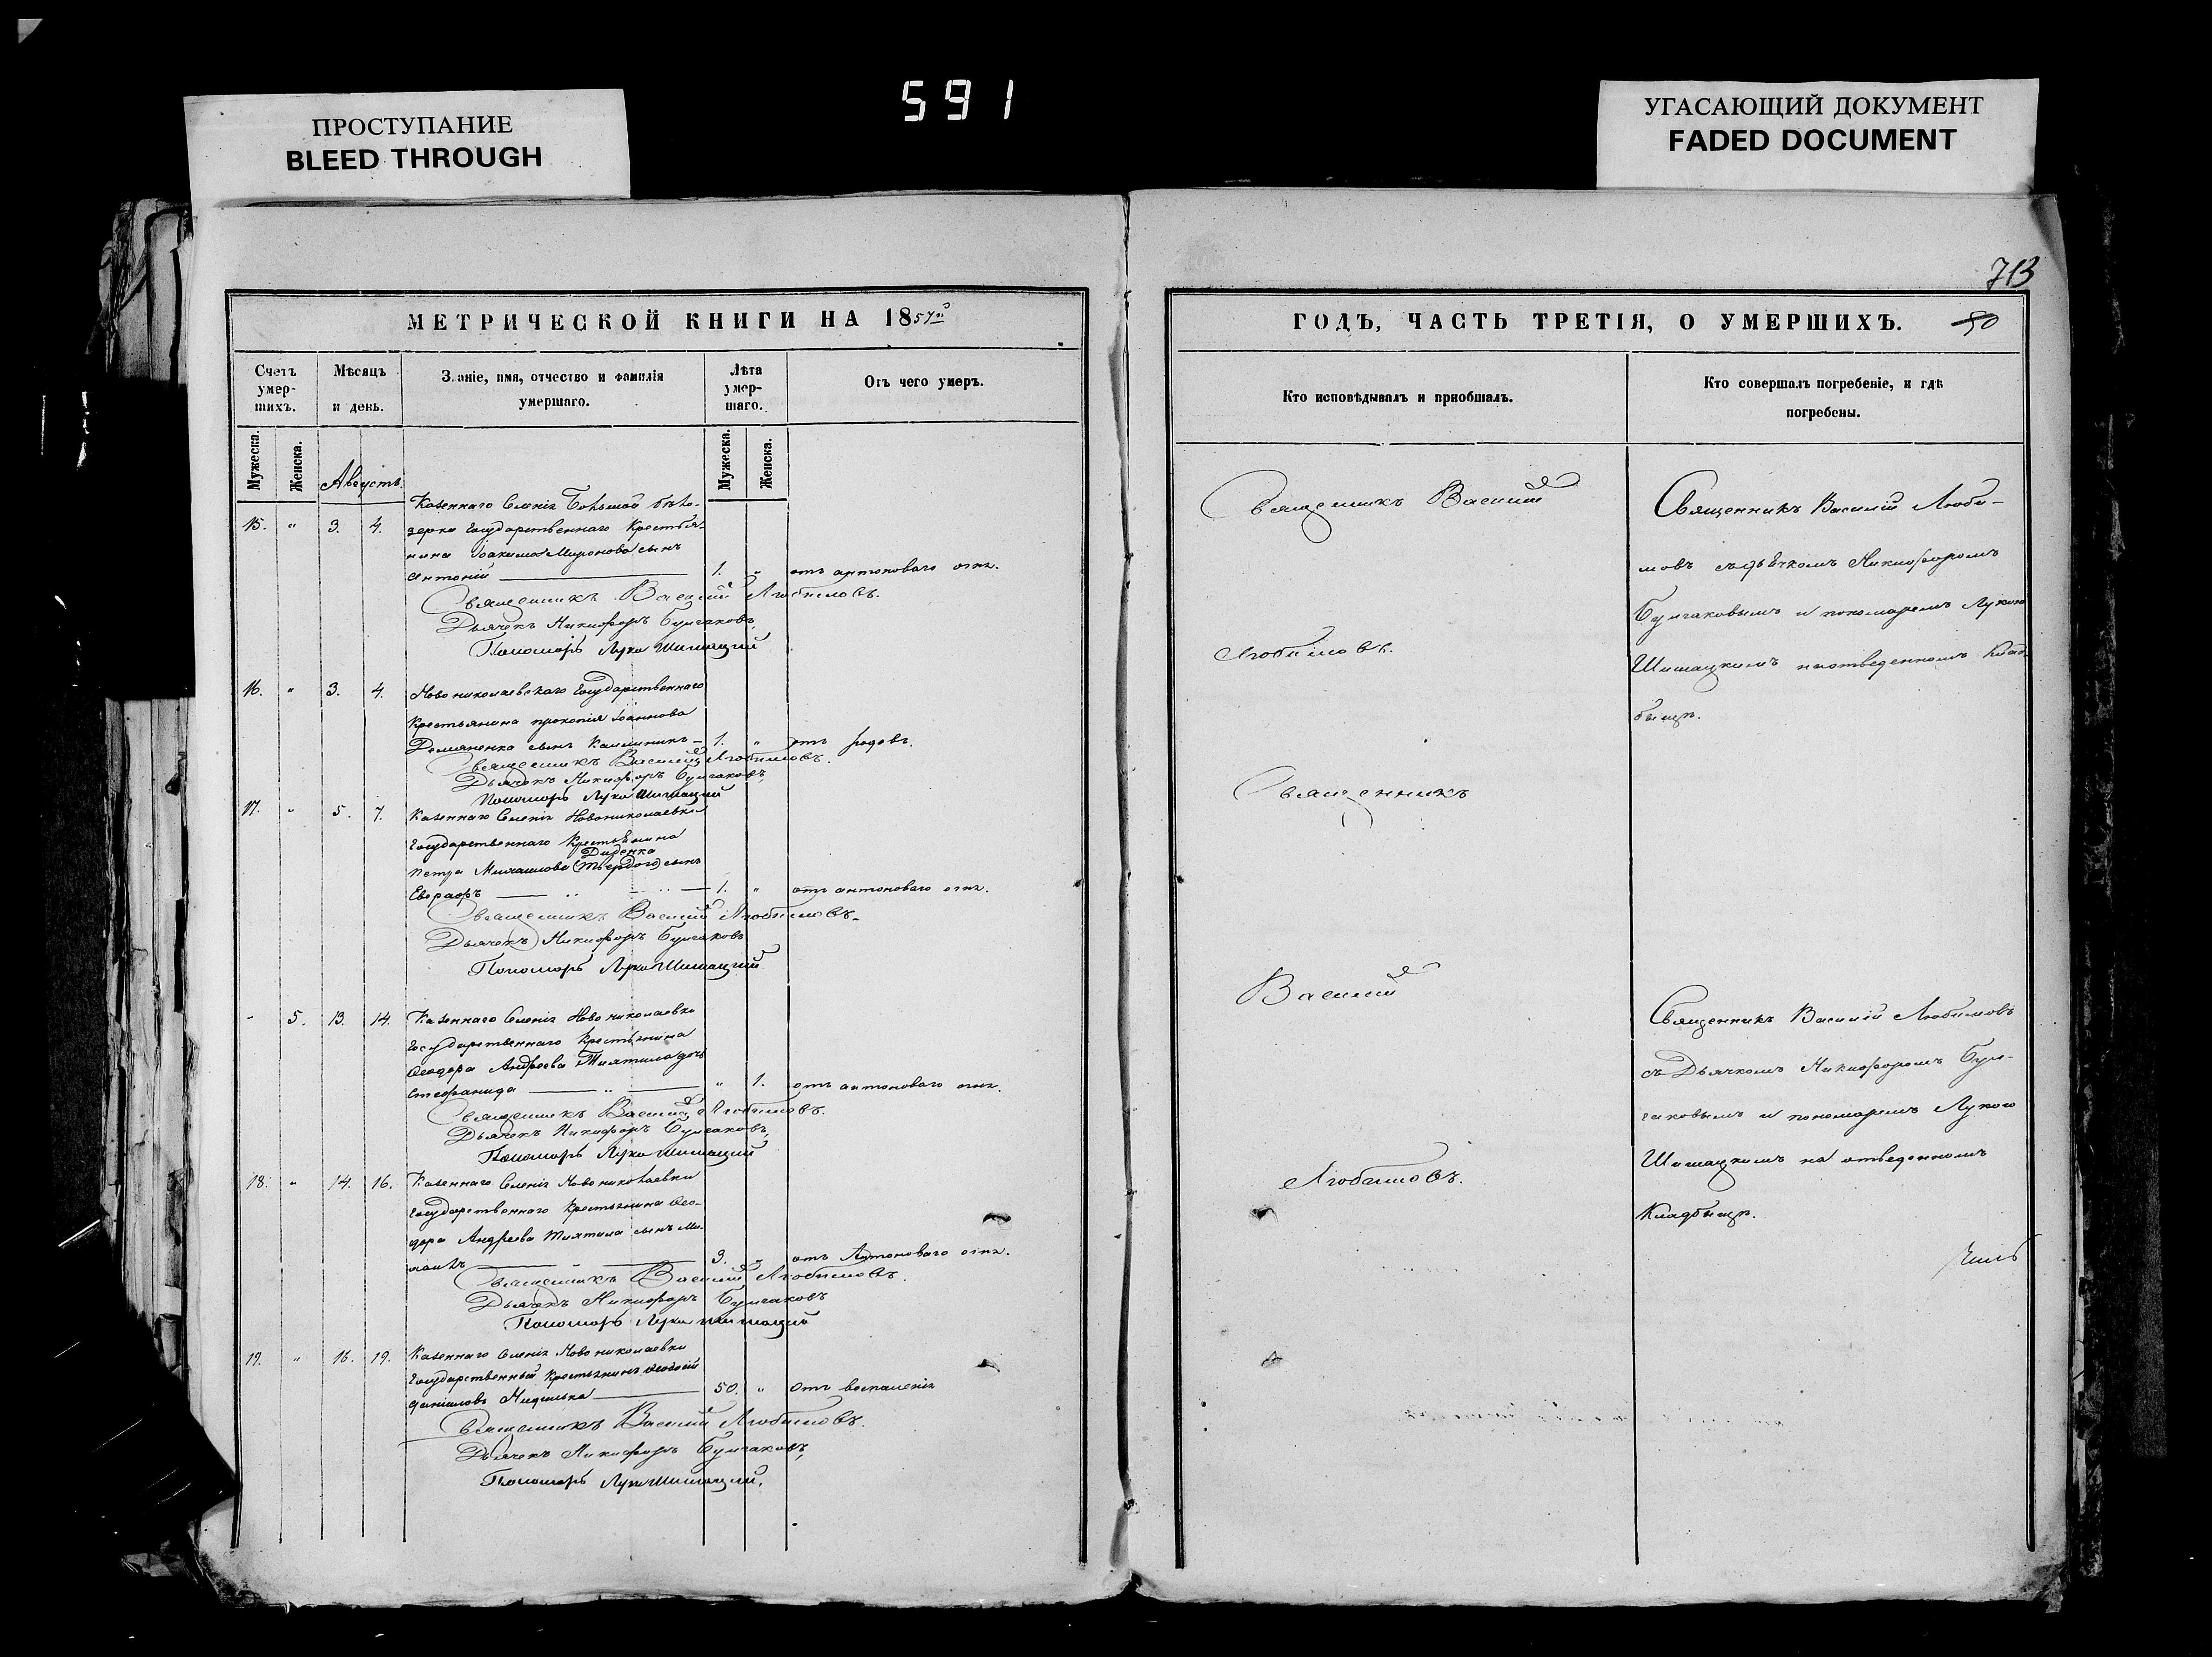 591
ПРОСТУПАНИЕ
BLEED THROUGH
УГАСАЮЩИЙ ДОКУМЕНТ
FADED DOCUMENT
МЕТРИЧЕСКОЙ КНИГИ НА 1857й
Счетъ умер-шихъ.
Мужеска.
Женска.
Мѣсяцъ и день.
Званіе, имя, отчество и фамилія умершаго.
Лѣта умер-шаго.
Мужеска.
Женска.
Отъ чего умеръ.
Августъ.
Казеннаго Селенія Большой бѣло-
15. " 3. 4. зерки Государственнаго Крестья-
нина Іоакима Миронова сынъ
Антоній 1. " отъ антоноваго огня.
Священникъ Василій Любимовъ.
Дьячекъ Никифоръ Булгаковъ,
Пономарь Лука Шишацкий
16. " 3. 4. Новониколаевскаго Государственнаго
Крестьянина прокопія Іоаннова
Демяненка сынъ Каллиникъ 1. " отъ родовъ.
Священникъ Василій Любимовъ.
Дьячекъ Никифоръ Булгаковъ,
Пономарь Лука Шишацкий
17. " 5. 7. Казеннаго Селенія Новониколаевки
Государственнаго Крестьянина
Диденка
Петра Михаилова (Твердого) сынъ
Евграфъ 1. " отъ антоноваго огня.
Священникъ Василій Любимовъ.
Дьячекъ Никифоръ Булгаковъ
Пономарь Лука Шишацкий
- 5. 13. 14. Казеннаго Селенія Новониколаевки
Государственнаго Крестьянина
Ѳеодора Андреева Тиятила дочь
Стефанида " 1. отъ антоноваго огня.
Священникъ Василій Любимовъ.
Дьячекъ Никифоръ Булгаковъ,
Пономарь Лука Шишацкий
18. " 14. 16. Казеннаго Селенія Новониколаевки
Государственнаго Крестьянина Ѳео-
дора Андреева Тиятила сынъ Ми-
3. " отъ Антоноваго огня.
Священникъ Василій Любимовъ.
Дьячекъ Никифоръ Булгаковъ
Пономарь Лука Шишацкий
19. " 16. 19. Казеннаго Селенія Новониколаевки
Государственный Крестьянинъ
даніиловъ 50. " Отъ воспаленія
Священникъ Василій Любимовъ.
Дьячекъ Никифоръ Булгаковъ,
Пономарь Лука Шишацкий.
713
ГОДЪ, ЧАСТЬ ТРЕТІЯ, О УМЕРШИХЪ. 50
Кто исповѣдывалъ и пріобщалъ.
Кто совершалъ погребеніе, и гдѣ
погребены.
Священникъ Василій
Любимовъ.
Священникъ
Василій
Любимовъ.
Священникъ Василій Люби-
мовъ съ дьячкомъ Никифоромъ
Булгаковымъ и пономаремъ Лукою
Шишацкимъ на отведенномъ Клад-
бищѣ.
Священникъ Василій Любимовъ
съ Дьячкомъ Никифоромъ Бул-
гаковымъ и пономаремъ Лукою
Шишацкимъ на отведенномъ
Кладбищѣ.